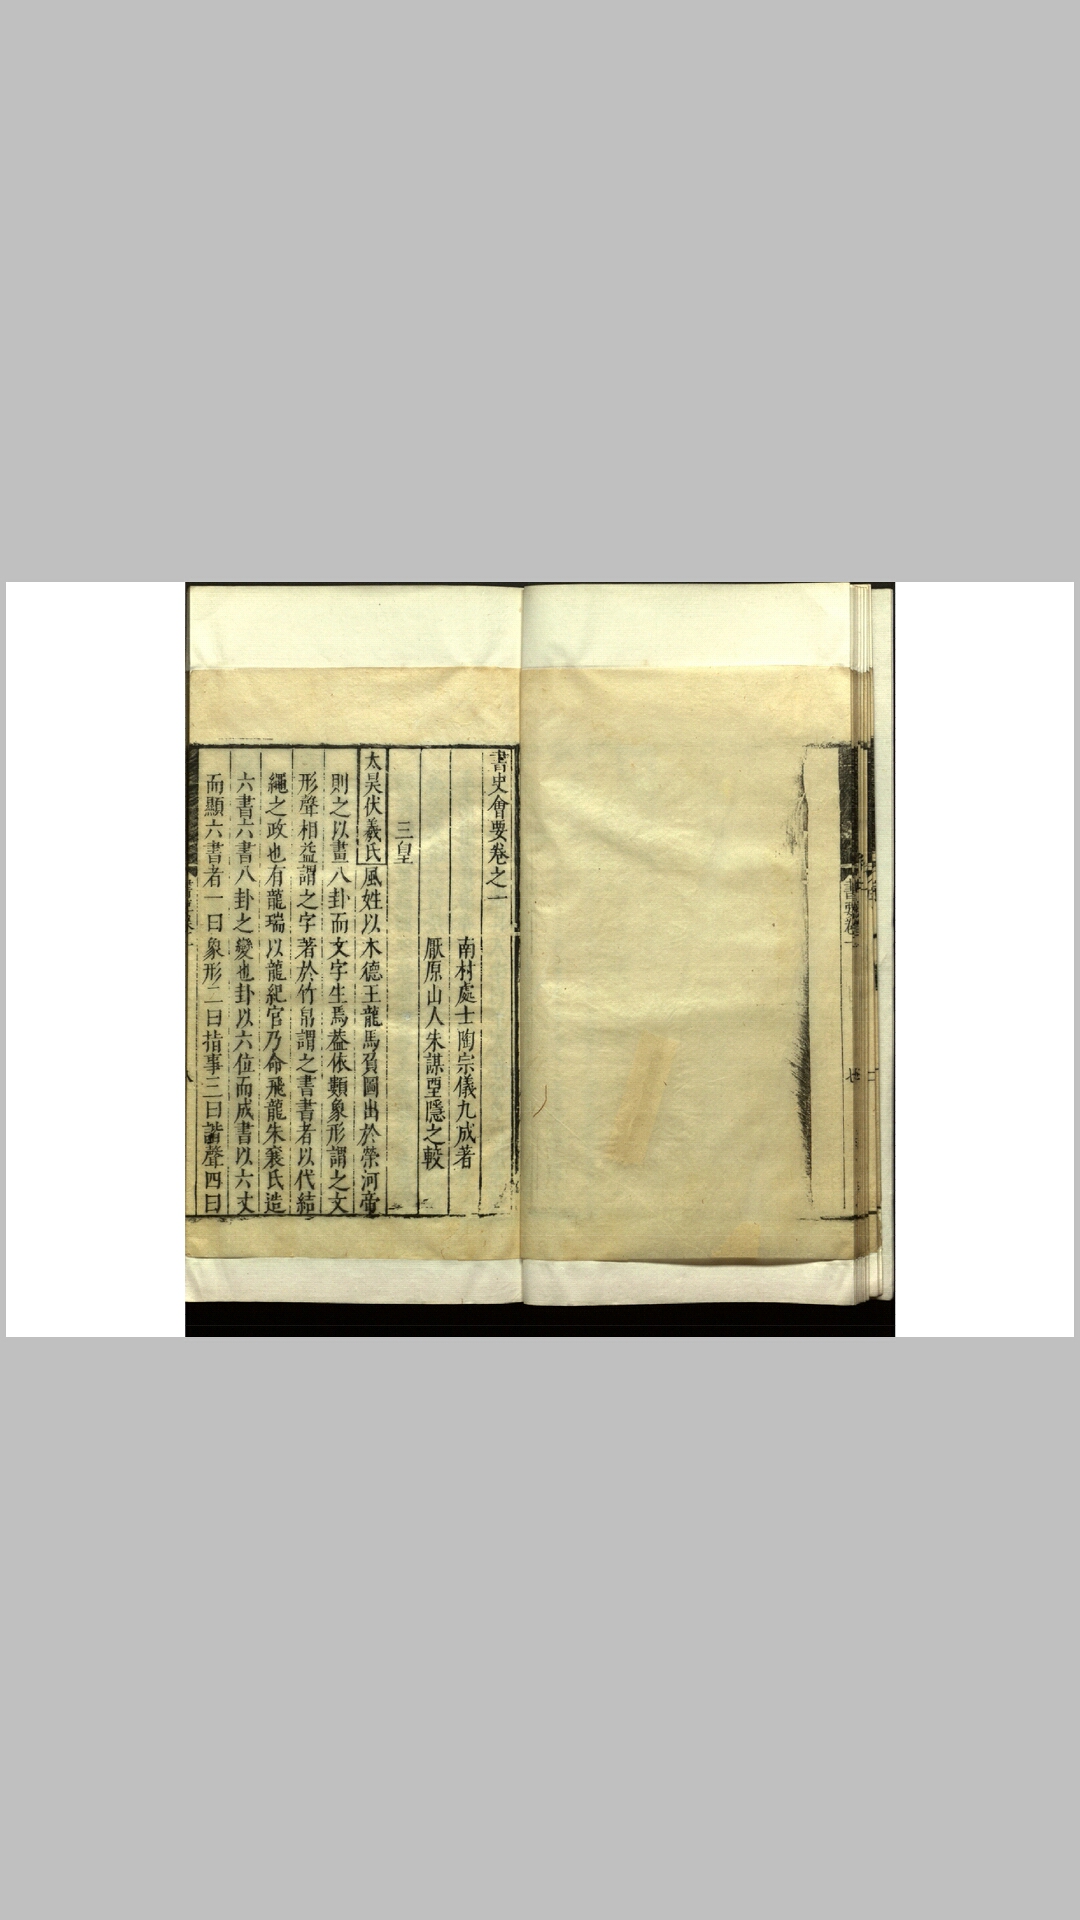 書史會要卷之一
南村處士陶宗儀九成著
厭原山人朱謀垔隱之較
三皇
太昊伏羲氏風姓以木德王龍馬負圖出於滎河帝
則之以畫八卦而文字生焉葢依類象形謂之文
形聲相益謂之字著於竹帛謂之書書者以代結
繩之政也有龍瑞以龍紀官乃命飛龍朱襄氏造
六書六書八卦之變也卦以六位而成書以六文
而顯六書者一曰象形二曰指事三曰諧聲四曰